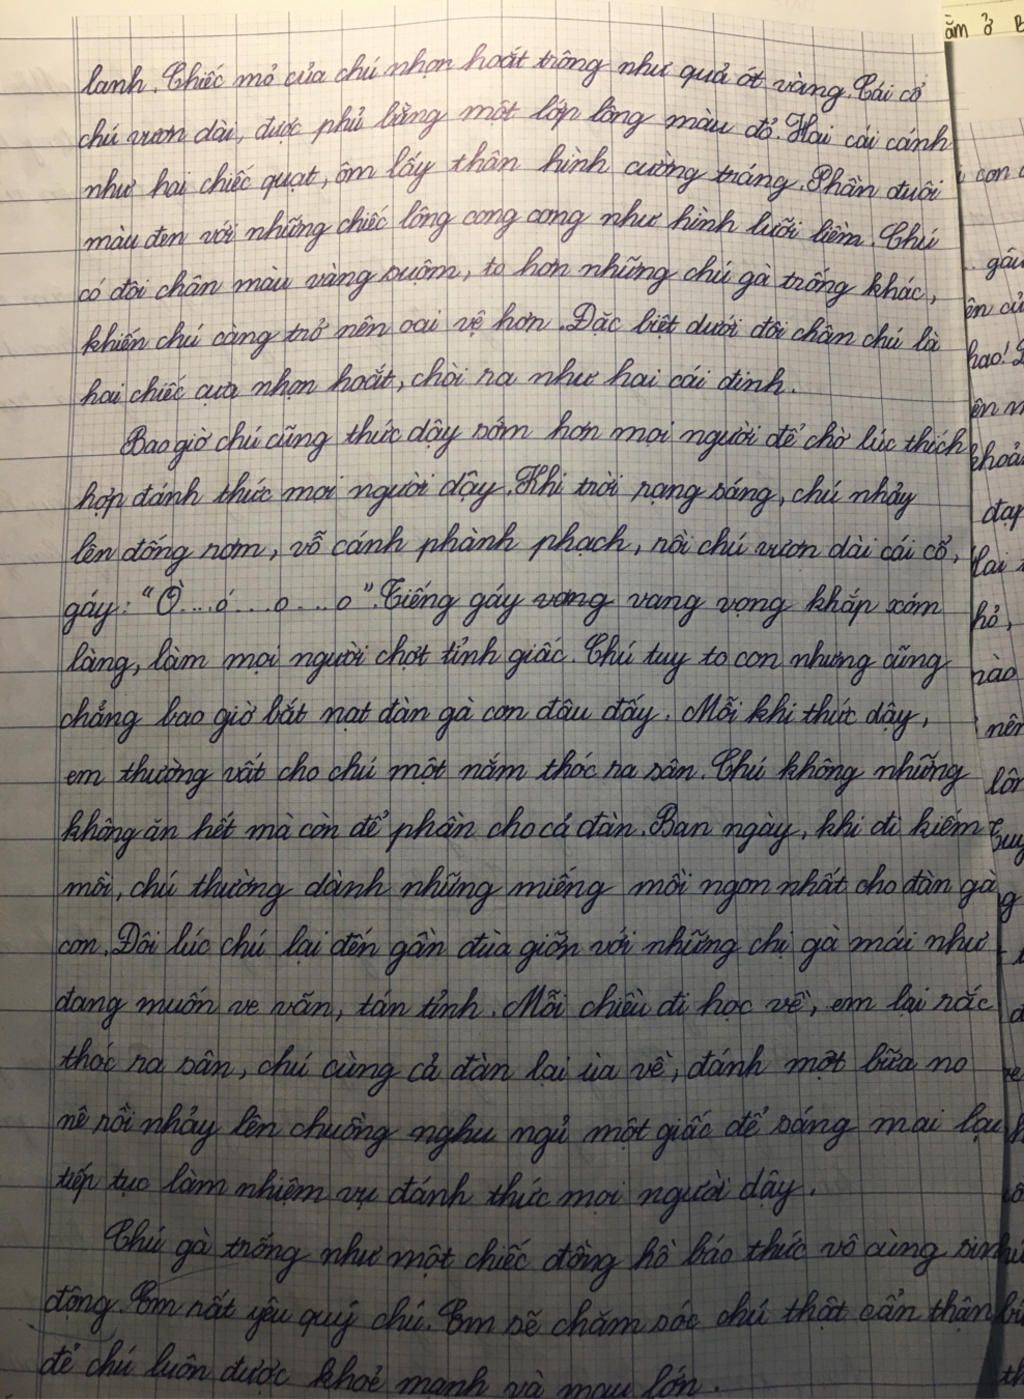 lanh. Chiếc mỏ của chú nhọn hoắt trông như quả ớt vàng. Cái cổ
chú vươn dài, được phủ bằng một lớp lông màu đỏ. Hai cái cánh
như hai chiếc quạt, ôm lấy thân hình cường tráng. Phần đuôi
màu đen với những chiếc lông cong cong như hình lưỡi liềm. Chú
có đôi chân màu vàng suộm, to hơn những chú gà trống khác,
khiến chú càng trở nên oai vệ hơn. Đặc biệt dưới đôi chân chú là
hai chiếc cựa nhọn hoắt, chòi ra như hai cái đinh.
Bao giờ chú cũng thức dậy sớm hơn mọi người để chờ lúc thích
hợp đánh thức mọi người dậy. Khi trời rạng sáng, chú nhảy
lên đống rơm, vỗ cánh phành phạch, rồi chú vươn dài cái cổ,
gáy: "Ò....ó....o....o". Tiếng gáy vang vang vọng khắp xóm
làng, làm mọi người chợt tỉnh giấc. Chú tuy to con nhưng cũng
chẳng bao giờ bắt nạt đàn gà con đâu đấy. Mỗi khi thức dậy,
em thường vất cho chú một nắm thóc ra sân. Chú không những
không ăn hết mà còn để phần cho cả đàn. Ban ngày, khi đi kiếm
mồi, chú thường dành những miếng mồi ngon nhất cho đàn gà
con. Đôi lúc chú lại đến gần đùa giỡn với những chị gà mái như
đang muốn ve vãn, tán tỉnh. Mỗi chiều đi học về, em lại rắc
thóc ra sân, chú cùng cả đàn lại ùa về, đánh một bữa no
nê rồi nhảy lên chuồng nghu ngủ một giấc để sáng mai lại
tiếp tục làm nhiệm vụ đánh thức mọi người dậy.
Chú gà trống như một chiếc đồng hồ báo thức vô cùng sinh
động. Em rất yêu quý chú. Em sẽ chăm sóc chú thật cẩn thận
để chú luôn được khoẻ mạnh và mau lớn.